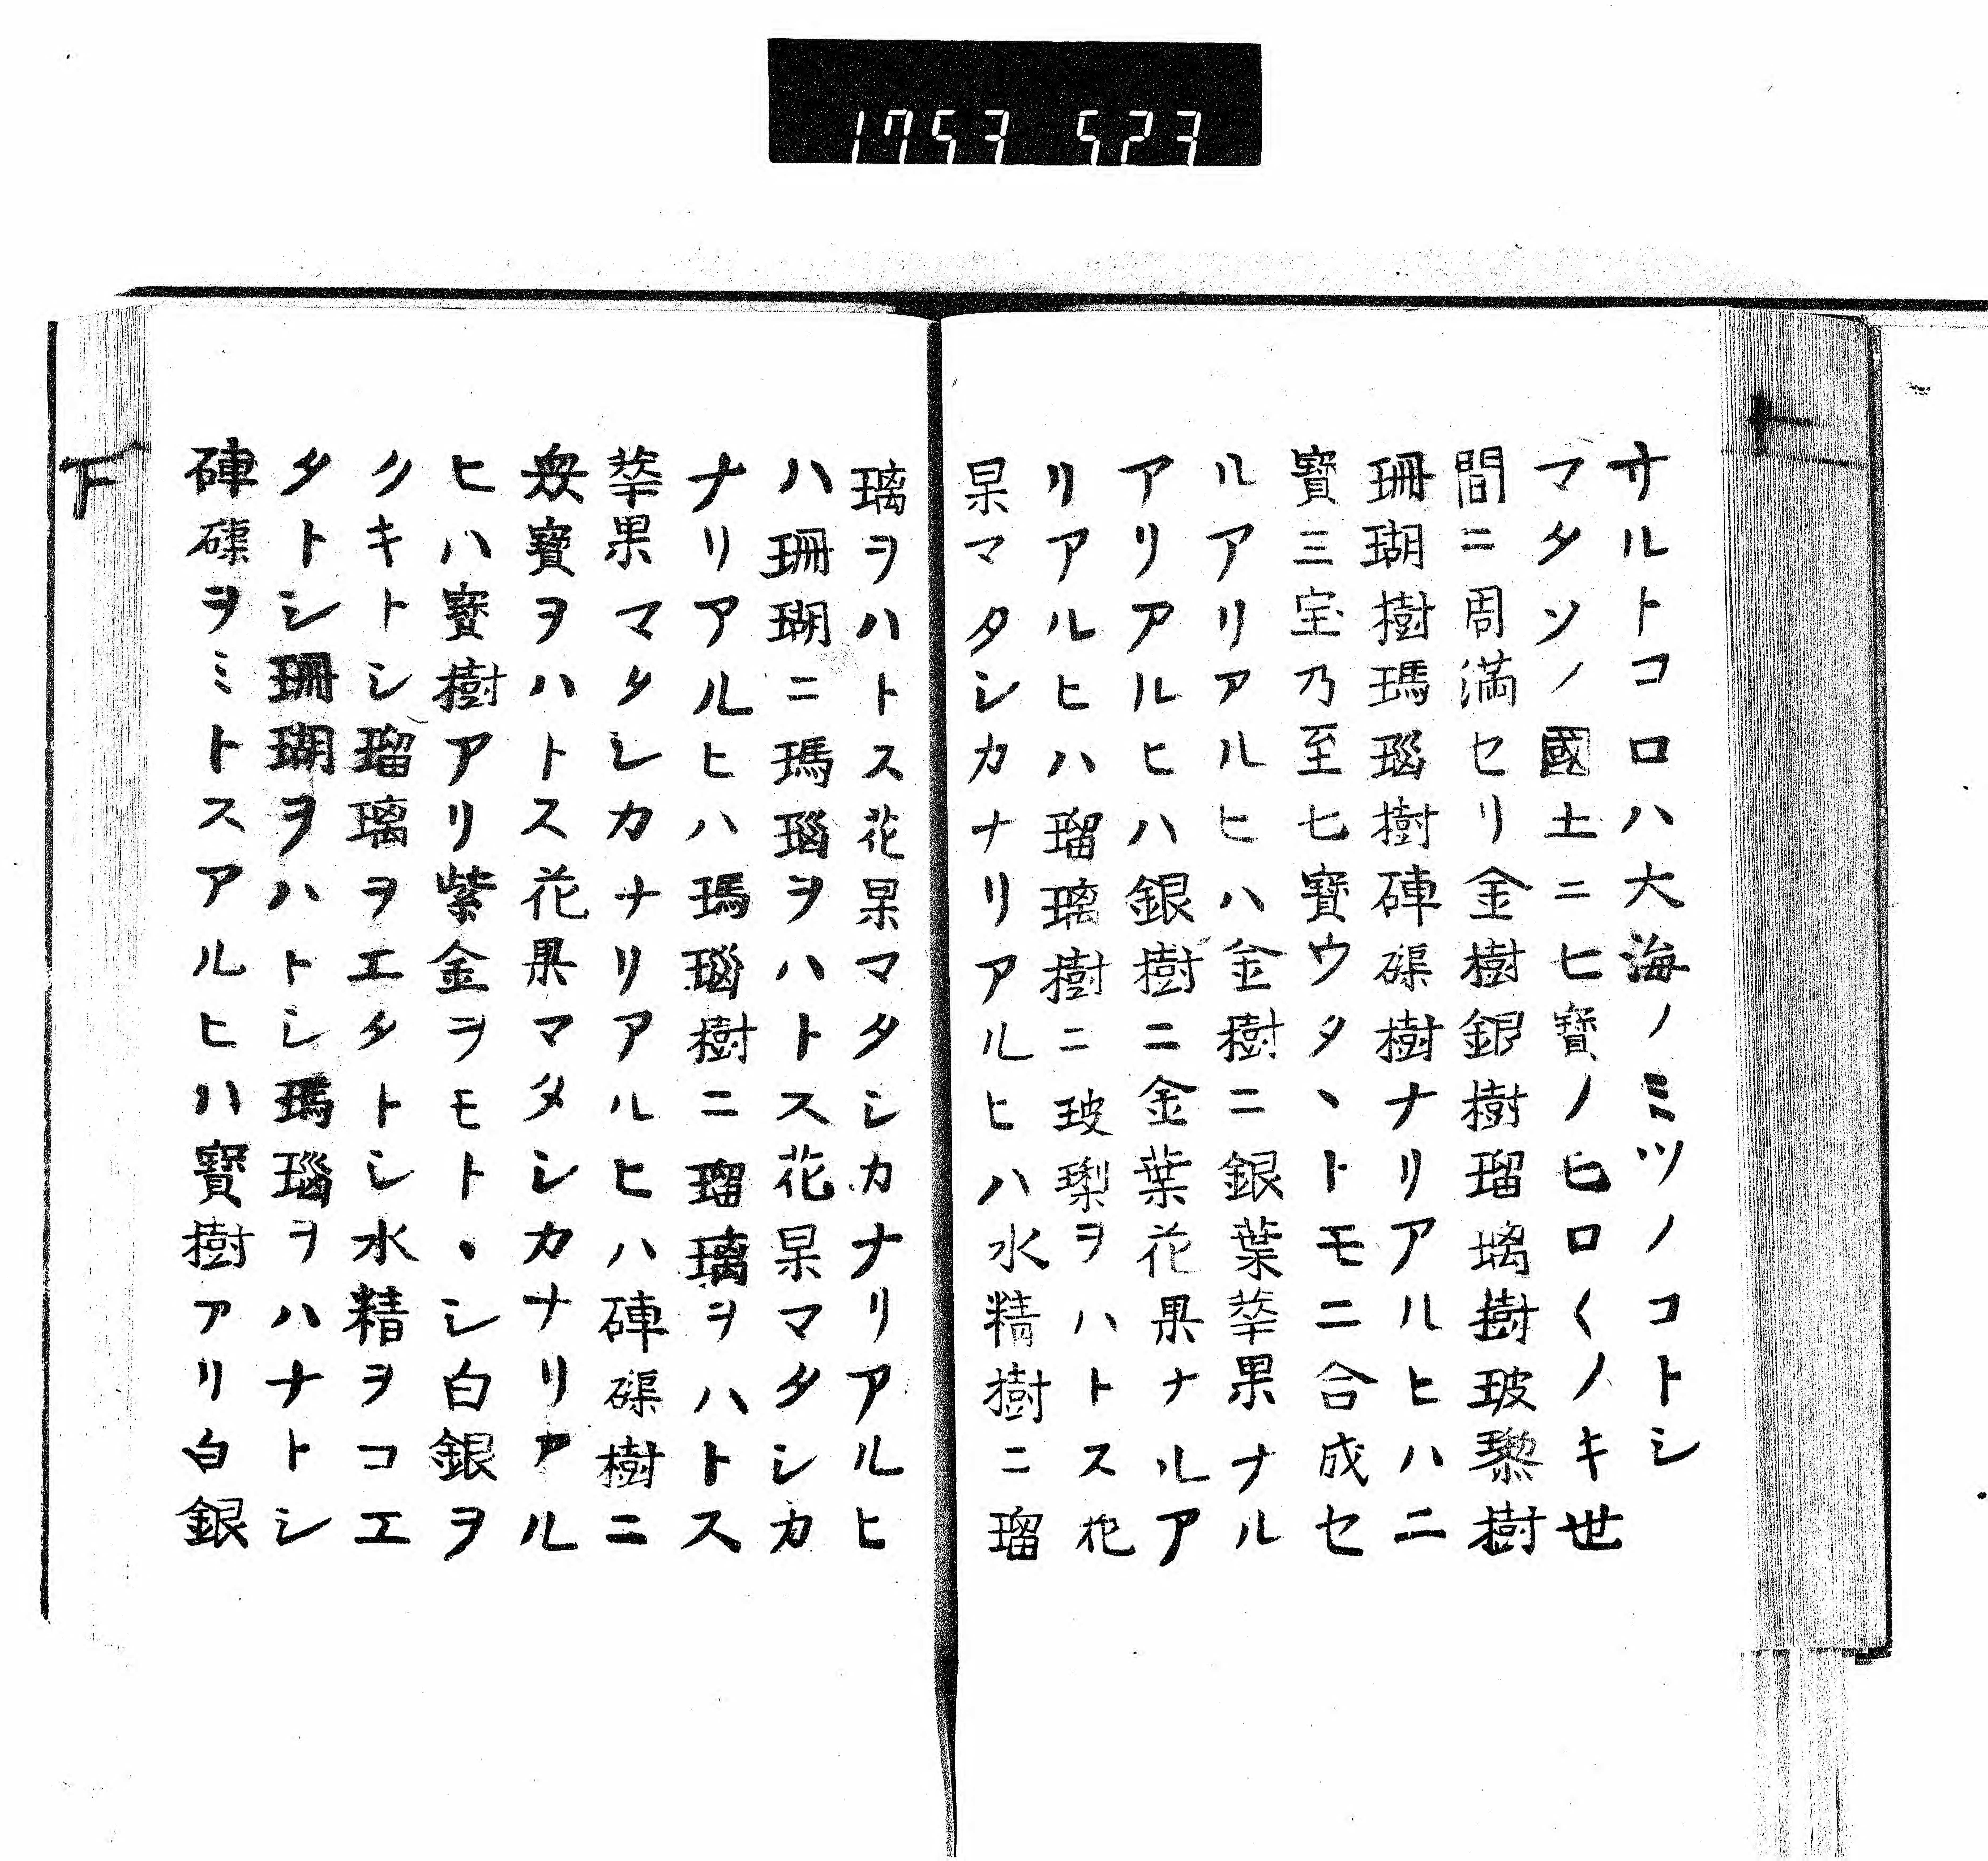 1753 523
サルトコロハ大海ノミツノコトシ
マタソノ國土ニヒ寶ノヒロくノキ世
間ニ周満セリ金樹銀樹瑠璃樹玻瓈樹
珊瑚樹瑪瑙樹硨磲樹ナリアルヒハ二
寶三宝乃至七寶ウタヽトモニ合成セ
ルアリアルヒハ金樹ニ銀葉華果ナル
アリアルヒハ銀樹ニ金葉花果ナルア
リアルヒハ瑠璃樹ニ玻瓈ヲハトス花
果マタシカナリアルヒハ水精樹ニ瑠
璃ヲハトス花果マタシカナリアルヒ
ハ珊瑚ニ瑪瑙ヲハトス花果マタシカ
ナリアルヒハ瑪瑙樹ニ瑠璃ヲハトス
華果マタシカナリアルヒハ硨磲樹ニ
衆寶ヲハトス花果マタシカナリアル
ヒハ寶樹アリ紫金ヲモトヽシ白銀ヲ
クキトシ瑠璃ヲエタトシ水精ヲコエ
タトシ珊瑚ヲハトシ瑪瑙ヲハナトシ
硨磲ヲミトスアルヒハ寶樹アリ白銀
下